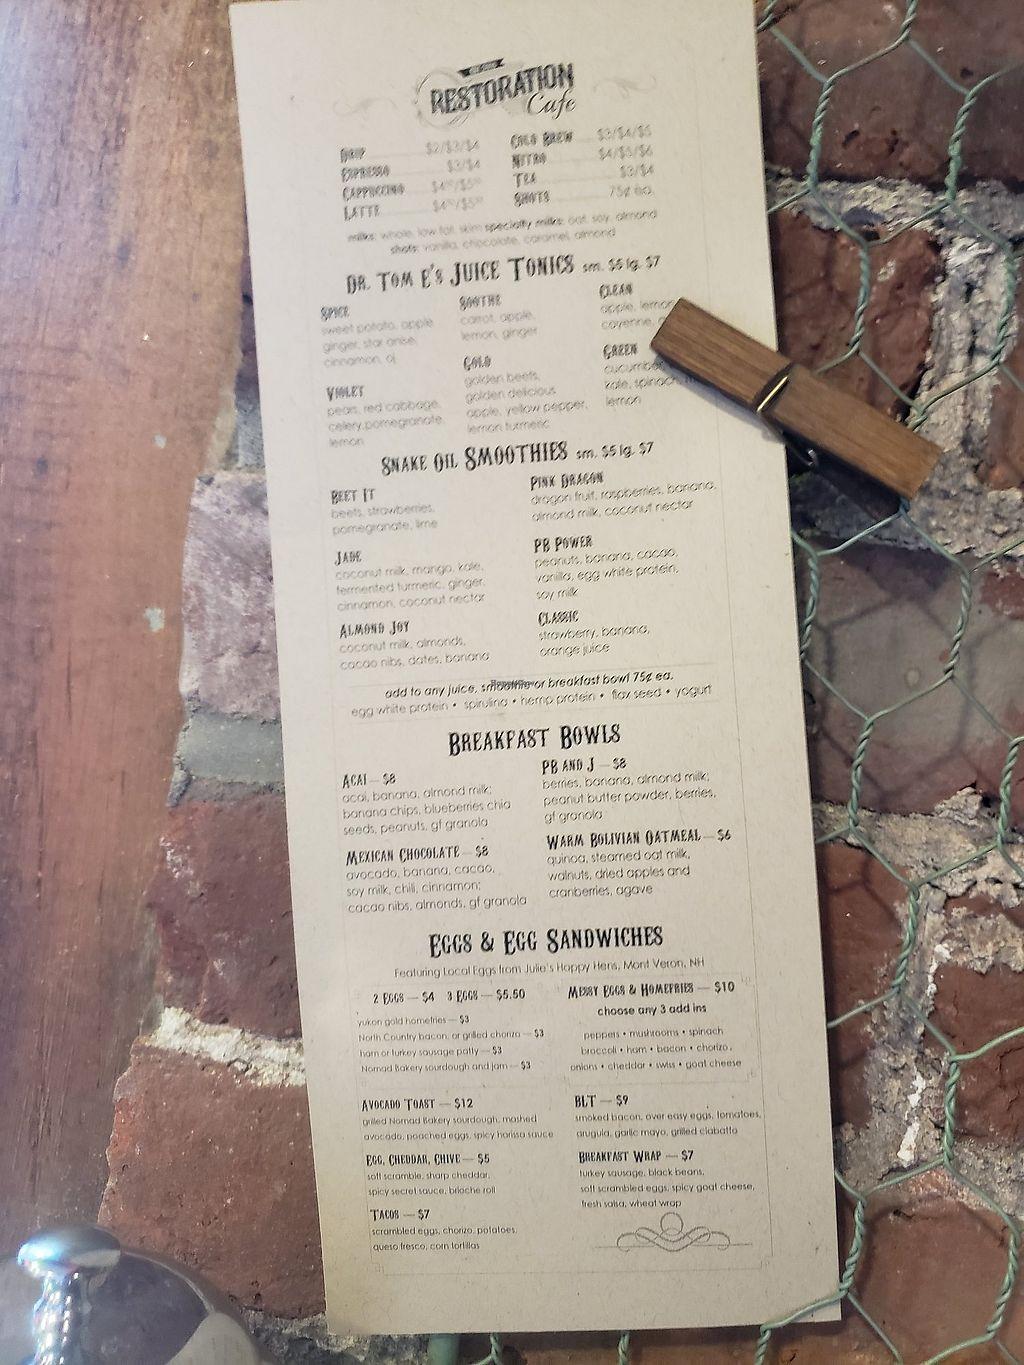 RESTORATION
Cafe
DRIP $2/$3/$4
ESPRESSO $3/$4
CAPPUCCINO $4⁵⁰/$5⁵⁰
LATTE $4⁵⁰/$5⁵⁰
COLD BREW $3/$4/$5
NITRO $4/$5/$6
TEA $3/$4
SHOTS 75¢ ea.
milks: whole, low fat, skim specialty milks: oat, soy, almond
shots: vanilla, chocolate, caramel, almond
DR. TOM E'S JUICE TONICS sm. $5 lg. $7
SPICE
sweet potato, apple
ginger, star anise,
cinnamon, oj
VIOLET
pears, red cabbage,
celery, pomegranate,
lemon
SOOTHE
carrot, apple,
lemon, ginger
GOLD
golden beets,
golden delicious
apple, yellow pepper,
lemon turmeric
CLEAN
apple, lemon
cayenne,
GREEN
cucumber
kale, spinach,
lemon
SNAKE OIL SMOOTHIES sm. $5 lg. $7
BEET IT
beets, strawberries,
pomegranate, lime
JADE
coconut milk, mango, kale,
fermented turmeric, ginger,
cinnamon, coconut nectar
ALMOND JOY
coconut milk, almonds,
cacao nibs, dates, banana
PINK DRAGON
dragon fruit, raspberries, banana,
almond milk, coconut nectar
PB POWER
peanuts, banana, cacao,
vanilla, egg white protein,
soy milk
CLASSIC
strawberry, banana,
orange juice
add to any juice, smoothie or breakfast bowl 75¢ ea.
egg white protein • spirulina • hemp protein • flax seed • yogurt
BREAKFAST BOWLS
ACAI — $8
acai, banana, almond milk;
banana chips, blueberries chia
seeds, peanuts, gf granola
MEXICAN CHOCOLATE — $8
avocado, banana, cacao,
soy milk, chili, cinnamon;
cacao nibs, almonds, gf granola
PB AND J — $8
berries, banana, almond milk;
peanut butter powder, berries,
gf granola
WARM BOLIVIAN OATMEAL — $6
quinoa, steamed oat milk,
walnuts, dried apples and
cranberries, agave
EGGS & EGG SANDWICHES
Featuring Local Eggs from Julie's Happy Hens, Mont Veron, NH
2 EGGS — $4 3 EGGS — $5.50
yukon gold homefries — $3
North Country bacon, or grilled choriza — $3
ham or turkey sausage patty — $3
Nomad Bakery sourdough and jam — $3
MESSY EGGS & HOMEFRIES — $10
choose any 3 add ins
peppers • mushrooms • spinach
broccoli • ham • bacon • chorizo,
onions • cheddar • swiss • goat cheese
AVOCADO TOAST — $12
grilled Nomad Bakery sourdough, mashed
avocado, poached eggs, spicy harissa sauce
EGG, CHEDDAR, CHIVE — $5
soft scramble, sharp cheddar,
spicy secret sauce, brioche roll
TACOS — $7
scrambled eggs, chorizo, potatoes,
queso fresco, corn tortillas
BLT — $9
smoked bacon, over easy eggs, tomatoes,
arugula, garlic mayo, grilled ciabatta
BREAKFAST WRAP — $7
turkey sausage, black beans,
soft scrambled eggs, spicy goat cheese,
fresh salsa, wheat wrap